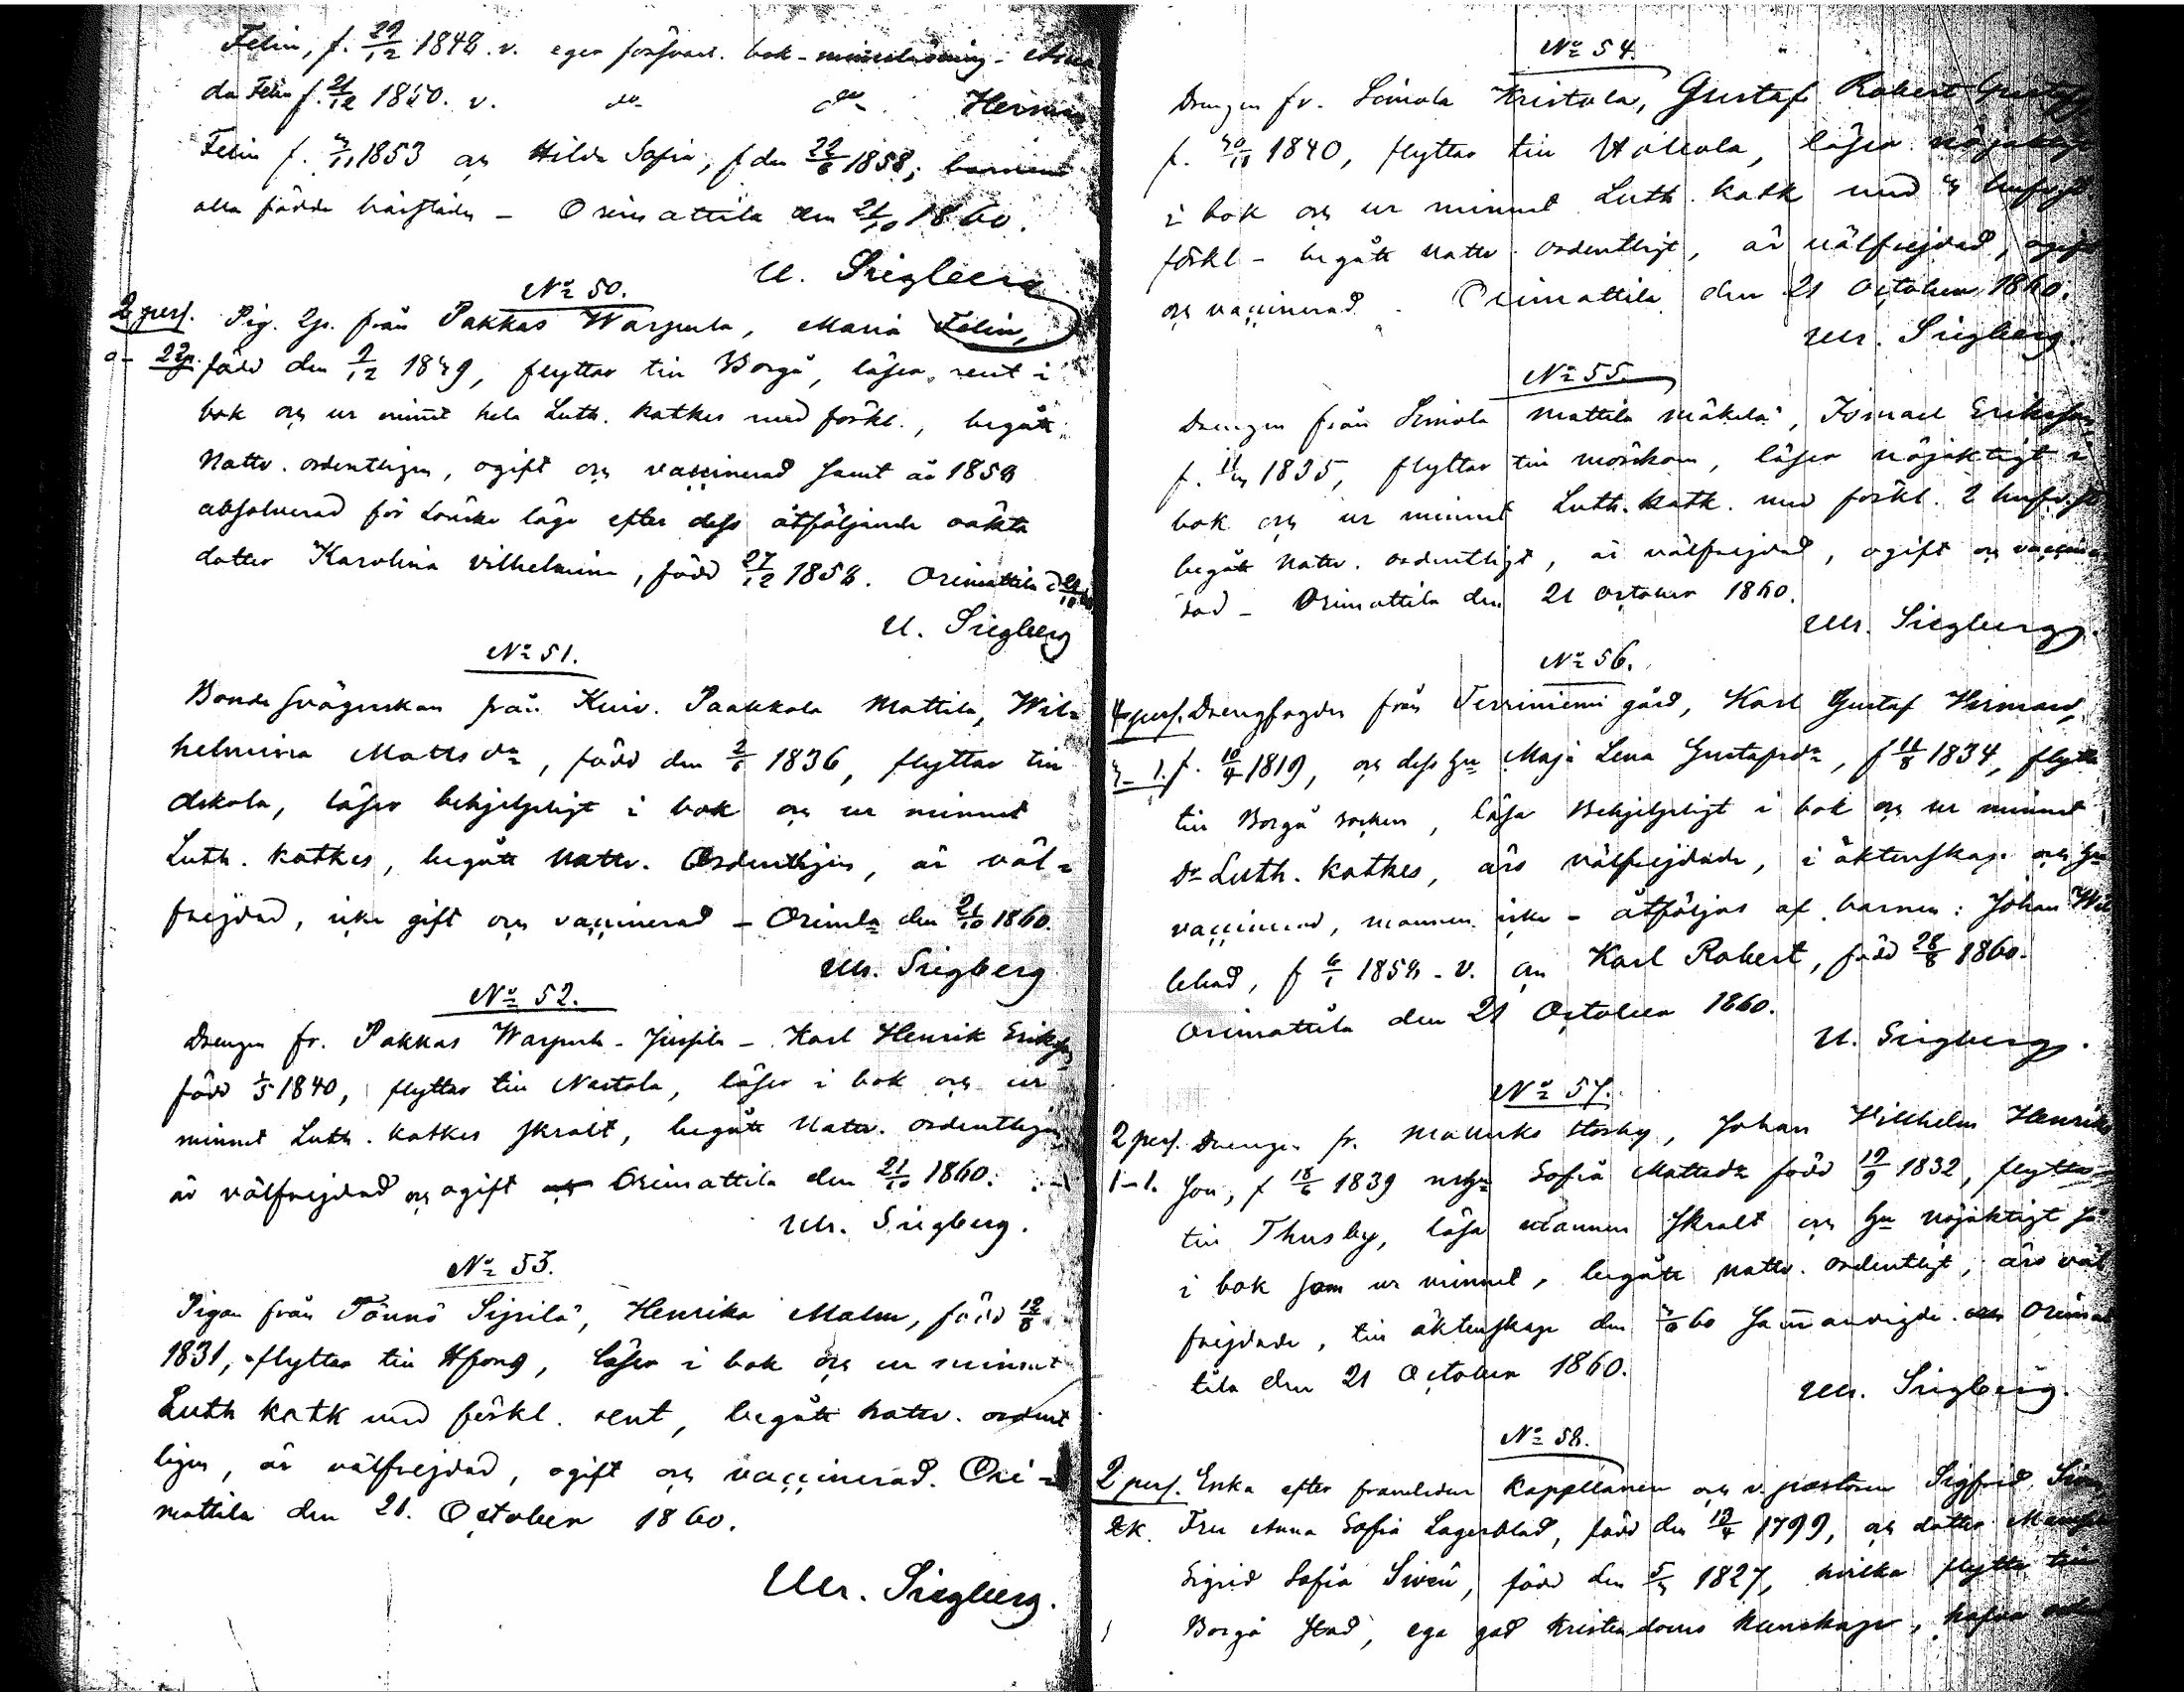 Felin, f. 29/12 1848. v. eger försvarl. bok-
da Felin f. 21/12 1850. v. do do Herman
Felin f. 1853 och Hilda Sofia, f den 22/6 1858; barnen
alla födde härstädes - Orimattila den 21/10 1860.
U. Siegberg
No 50.
2 pers. Pig. 2p. från Pakkas Warpula, Maria Felin,
född den 9/12 1829, flyttar till Borgå, läser rent i
bok och ur minnet hela Luth. katkes med förkl., begått
Nattv. ordentligen, ogift och vaccinerad samt år 1859
absolverad för lönska läge efter dess åtföljande oäkta
dotter Karolina Vilhelmina, född 27/12 1858. Orimattila d 21/10
U. Siegberg
No 51.
Bonde svägerskan från Kuiv. Paakkola Mattila, Wil=
helmina Mattsdr, född den 2/6 1836, flyttar till
Askola, läser behjelpligt i bok och ur minnet
Luth. katkes, begått Nattv. Ordentligen, är väl=
frejdad, icke gift och vaccinerad - Orimla den 21/10 1860.
Ulr. Siegberg
No 52.
Drengen fr. Pakkas Warpula - Jussila - Karl Henrik Eriksson
född 1/5 1840, flyttar till Nastola, läser i bok och ur
minnet Luth. katkes skralt, begått Nattv. ordentligen
är välfrejdad och ogift Orimattila den 21/10 1860.
Ulr. Siegberg.
No 53.
Pigan från Tönnö Sipilä, Henrika Malm, född 12/8
1831, flyttar till Hfors, läser i bok och ur minnet
Luth katk med förkl. rent, begått nattv. ordent
ligen, är välfrejdad, ogift och vaccinerad. Ori=
mattila den 21. October 1860.
Ulr. Siegberg.
No 54.
Drengen fr. Simola Kristola, Gustaf Robert Gustafss.
f. 1840, flyttar till Hollola, läser nöjaktigt
i bok och ur minnet Luth. katk med hufvst.
förkl - begått nattv. ordentligt, är välfrejdad, ogift
och vaccinerad. Orimattila den 21 October 1860.
Ulr. Siegberg.
No 55.
Drengen från Simola Mattila Mäkelä, Ismael Eriksson
f. 1835, flyttar till Mörskom, läser nöjaktigt i
bok och ur minnet Luth. katk. med förkl. 2 hufvst
begått nattv. ordentligt, är välfrejdad, ogift och vaccine
rad - Orimattila den 21 October 1860.
Ulr. Siegberg.
No 56.
4 pers. Drengfogden från Terriniemi gård, Karl Gustaf Hirman,
f. 10/4 1819, och dess hu Maja Lena Gustafsdr, f 11/8 1834, flytta
till Borgå socken, läsa Behjelpligt i bok och ur minnet
Dr Luth. katkes, äro välfrejdade, i äktenskap och hu
vaccinerad, mannen icke - åtföljas af barnen: Johan Wil
lehad, f 6/1 1859. v. och Karl Robert, född 28/8 1860.
Orimattila den 21 October 1860.
U. Siegberg.
No 57.
2 pers. Drengen fr. Mallusko Storby, Johan Vilhelm Henriks
1-1. son, f 18/6 1839 och hu Sofia Mattsdr född 19/9 1832, flytta
till Thusby, läsa mannen skralt och hu nöjaktigt så
i bok som ur minnet, begått nattv. ordentligt, äro väl
frejdade, till äktenskap den 60 Sammanvigde. Orimat
tila den 21 October 1860.
Ulr. Siegberg.
No 58.
2 pers. Enka efter framlidne Kapellanen och v. pastoren Sigfrid Siven
2K. Fru Anna Sofia Lagerblad, född den 12/4 1799, och dotter Mamsell
Sigrid Sofia Sivén, född den 1827, hvilka flytta till
Borgå stad, ega god Kristendoms kunskap, hafva